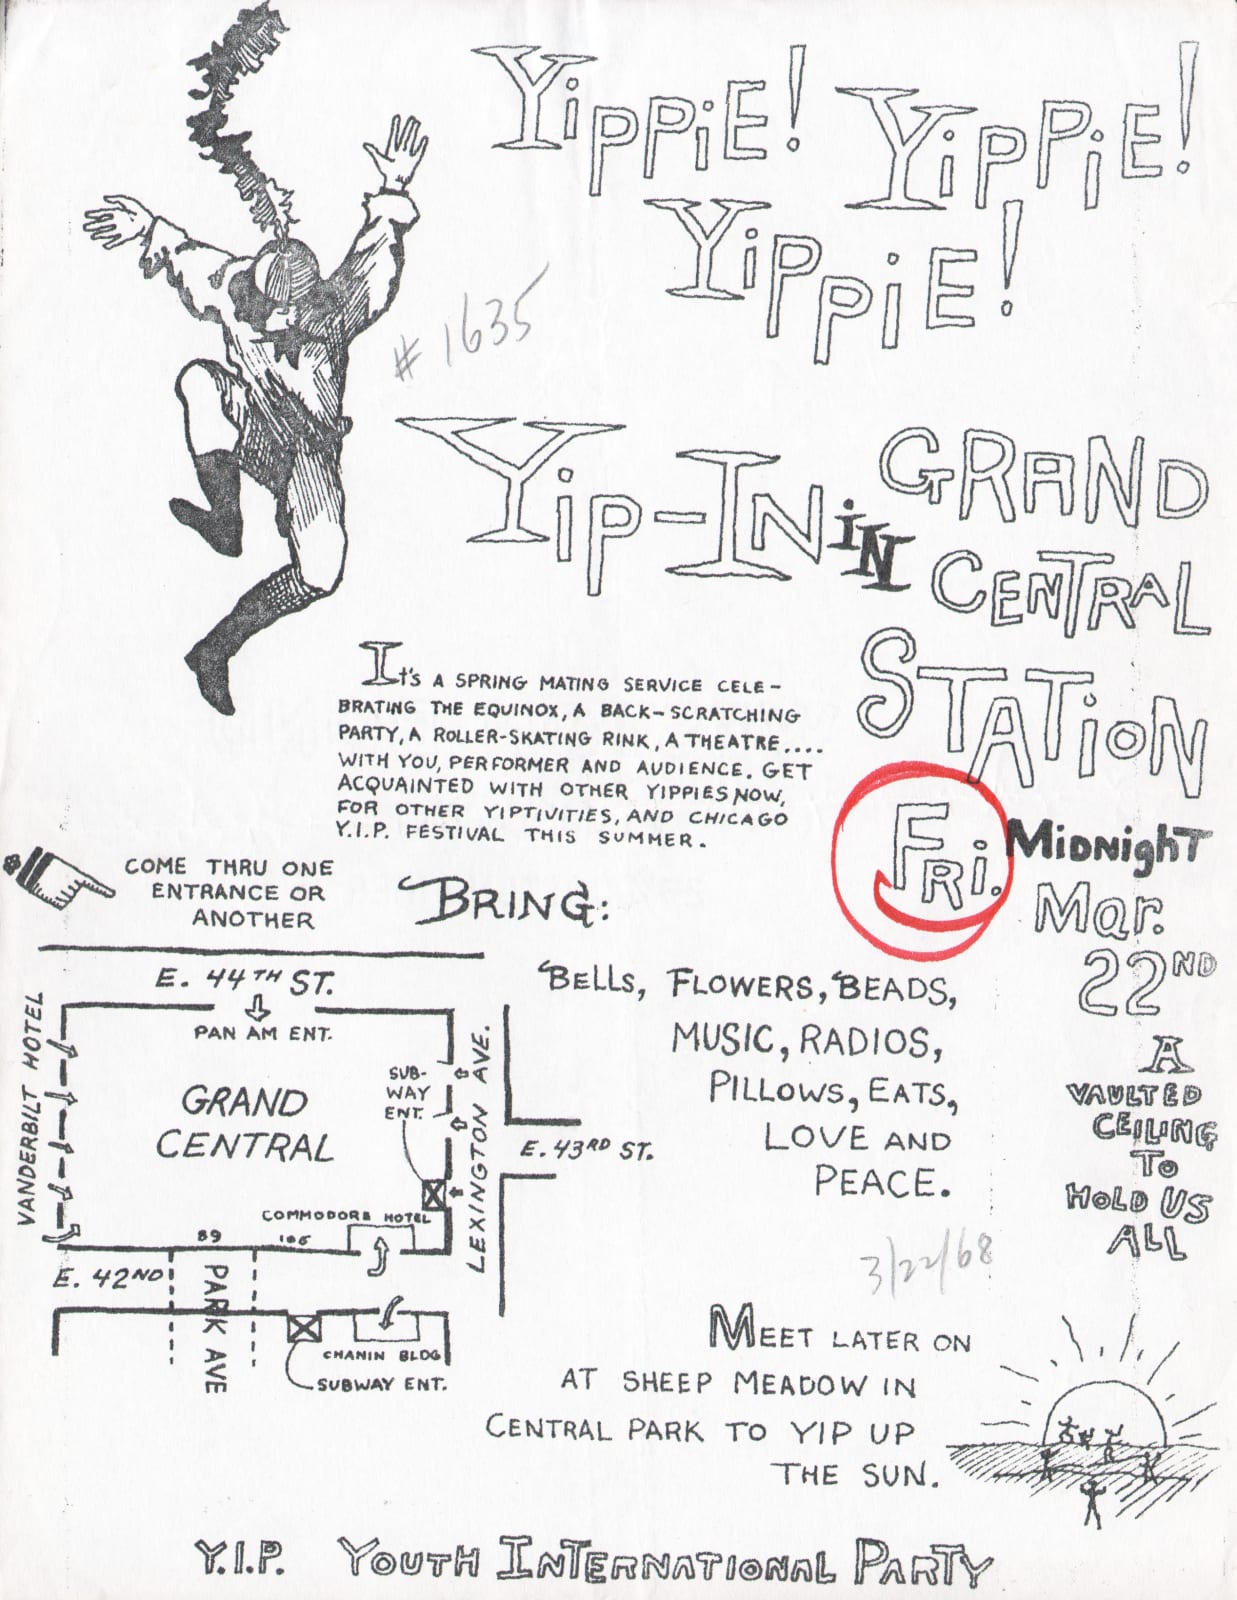 Yippie! Yippie!
Yippie!
# 1635
Yip-In in GRAND
CENTRAL
STATION
FRi. MidnighT
Mar.
22ND
A
VAULTED
CEILING
To
HOLD US
ALL
It's A SPRING MATING SERVICE CELE-
BRATING THE EQUINOX, A BACK-SCRATCHING
PARTY, A ROLLER-SKATING RINK, A THEATRE....
WITH YOU, PERFORMER AND AUDIENCE. GET
ACQUAINTED WITH OTHER YIPPIES NOW,
FOR OTHER YIPTIVITIES, AND CHICAGO
Y.I.P. FESTIVAL THIS SUMMER.
COME THRU ONE
ENTRANCE OR
ANOTHER
BRING:
BELLS, FLOWERS, BEADS,
MUSIC, RADIOS,
PILLOWS, EATS,
LOVE AND
PEACE.
E. 44TH ST.
PAN AM ENT.
VANDERBILT HOTEL
GRAND
CENTRAL
SUB-
WAY
ENT.
LEXINGTON AVE.
E. 43RD ST.
COMMODORE HOTEL
89 105
E. 42ND
PARK AVE
CHANIN BLDG
SUBWAY ENT.
3/22/68
MEET LATER ON
AT SHEEP MEADOW IN
CENTRAL PARK TO YIP UP
THE SUN.
Y.I.P. YOUTH INTERNATIONAL PARTY